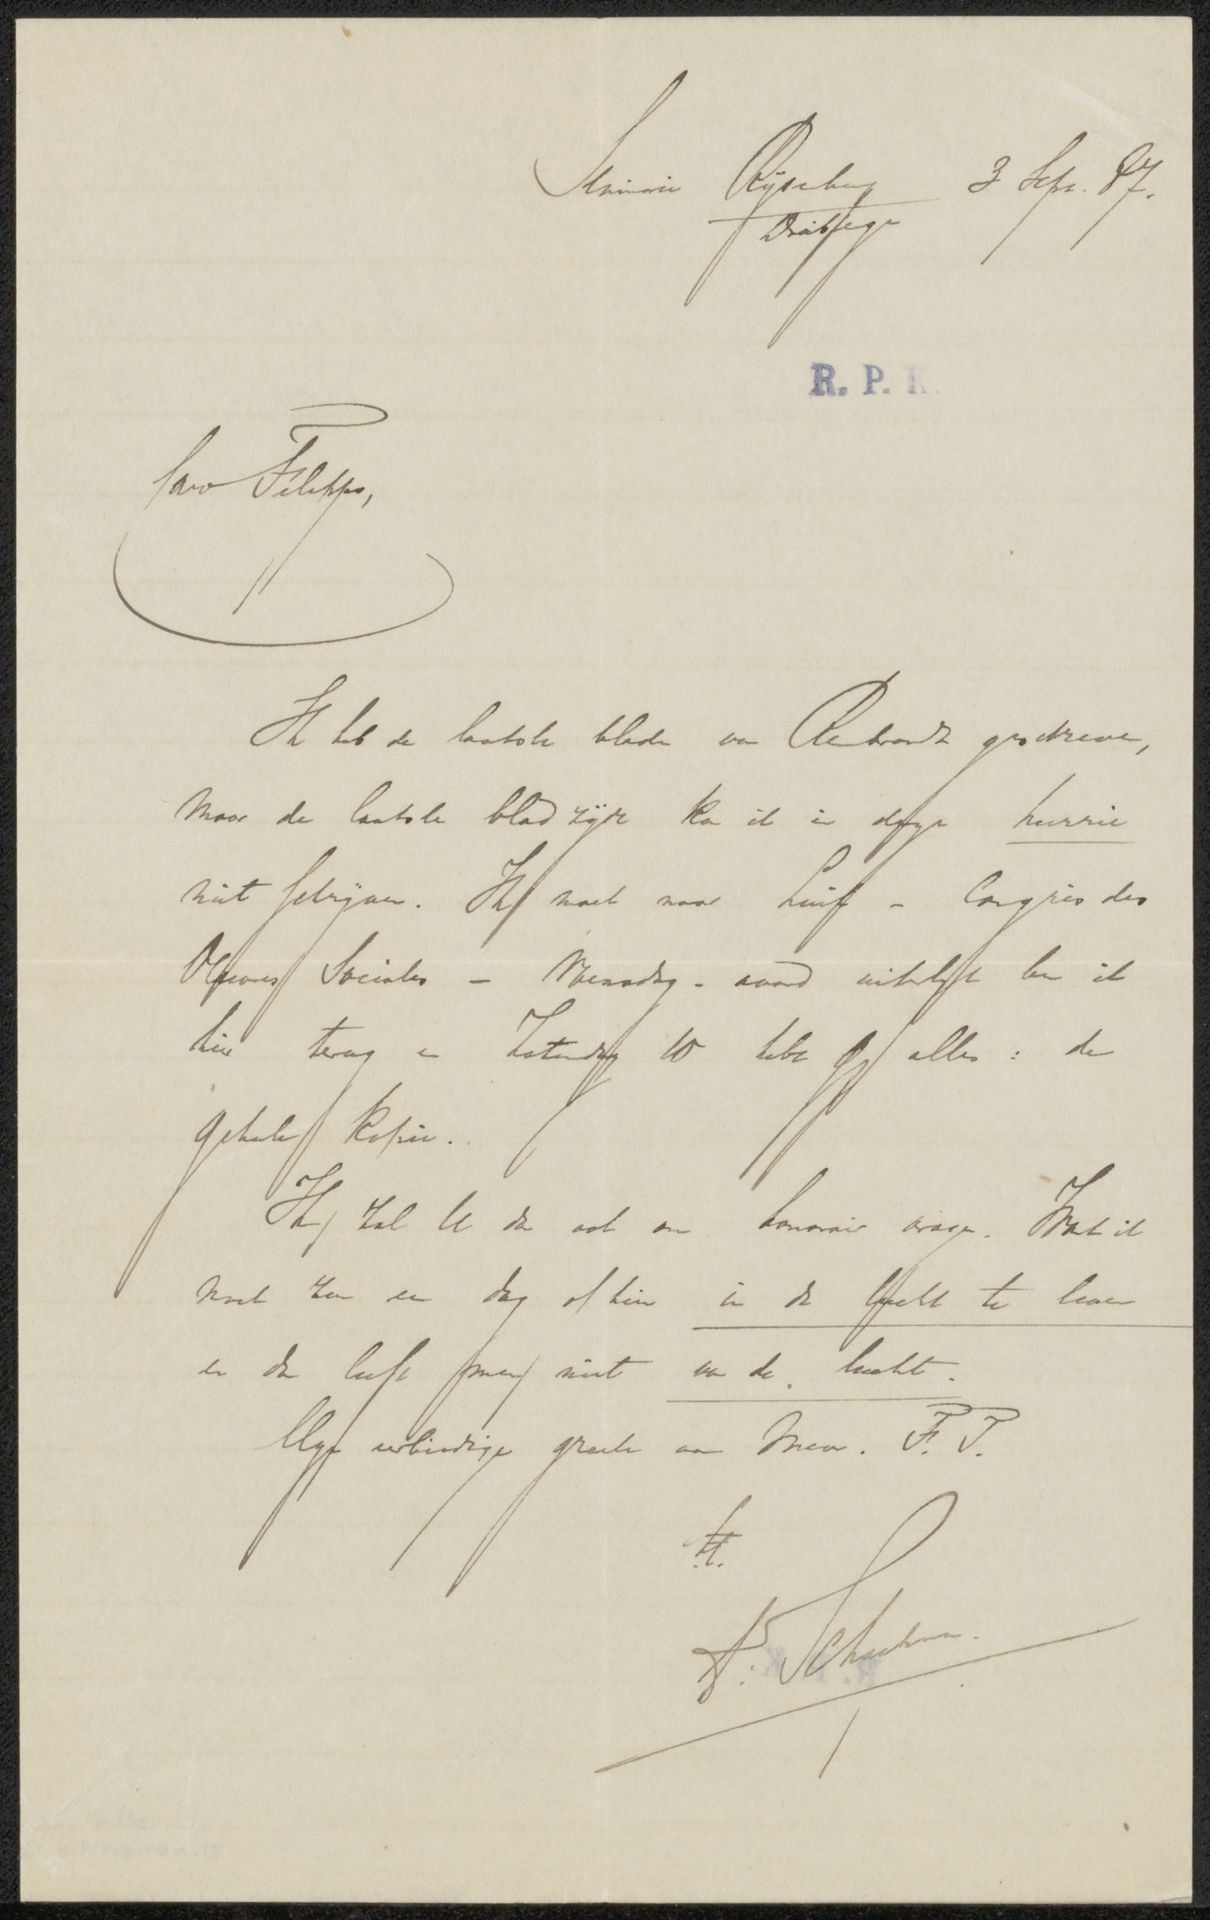 Seminarie Rijsenburg 3 Sept. 87.
Driebergen
R. P. K.
Caro Filippo,
Ik heb de laatste bladen van Rembrandt geschreven,
maar de laatste bladzijde kan ik in deze hurrie
niet schrijven. Ik moet naar Luik – Congrès des
Œuvres Sociales – Woensdag-avond uiterlijk ben ik
hier terug en Zaterdag 10 hebt gij alles: de
geheele kopie.
Ik zal U dan ook om honorair vragen. Want ik
moet zien een dag of tien in de lucht te leven
en dan leeft men niet van de lucht.
Mijn eerbiedige groete aan Mevr. F. P.
tt.
Schaepman.